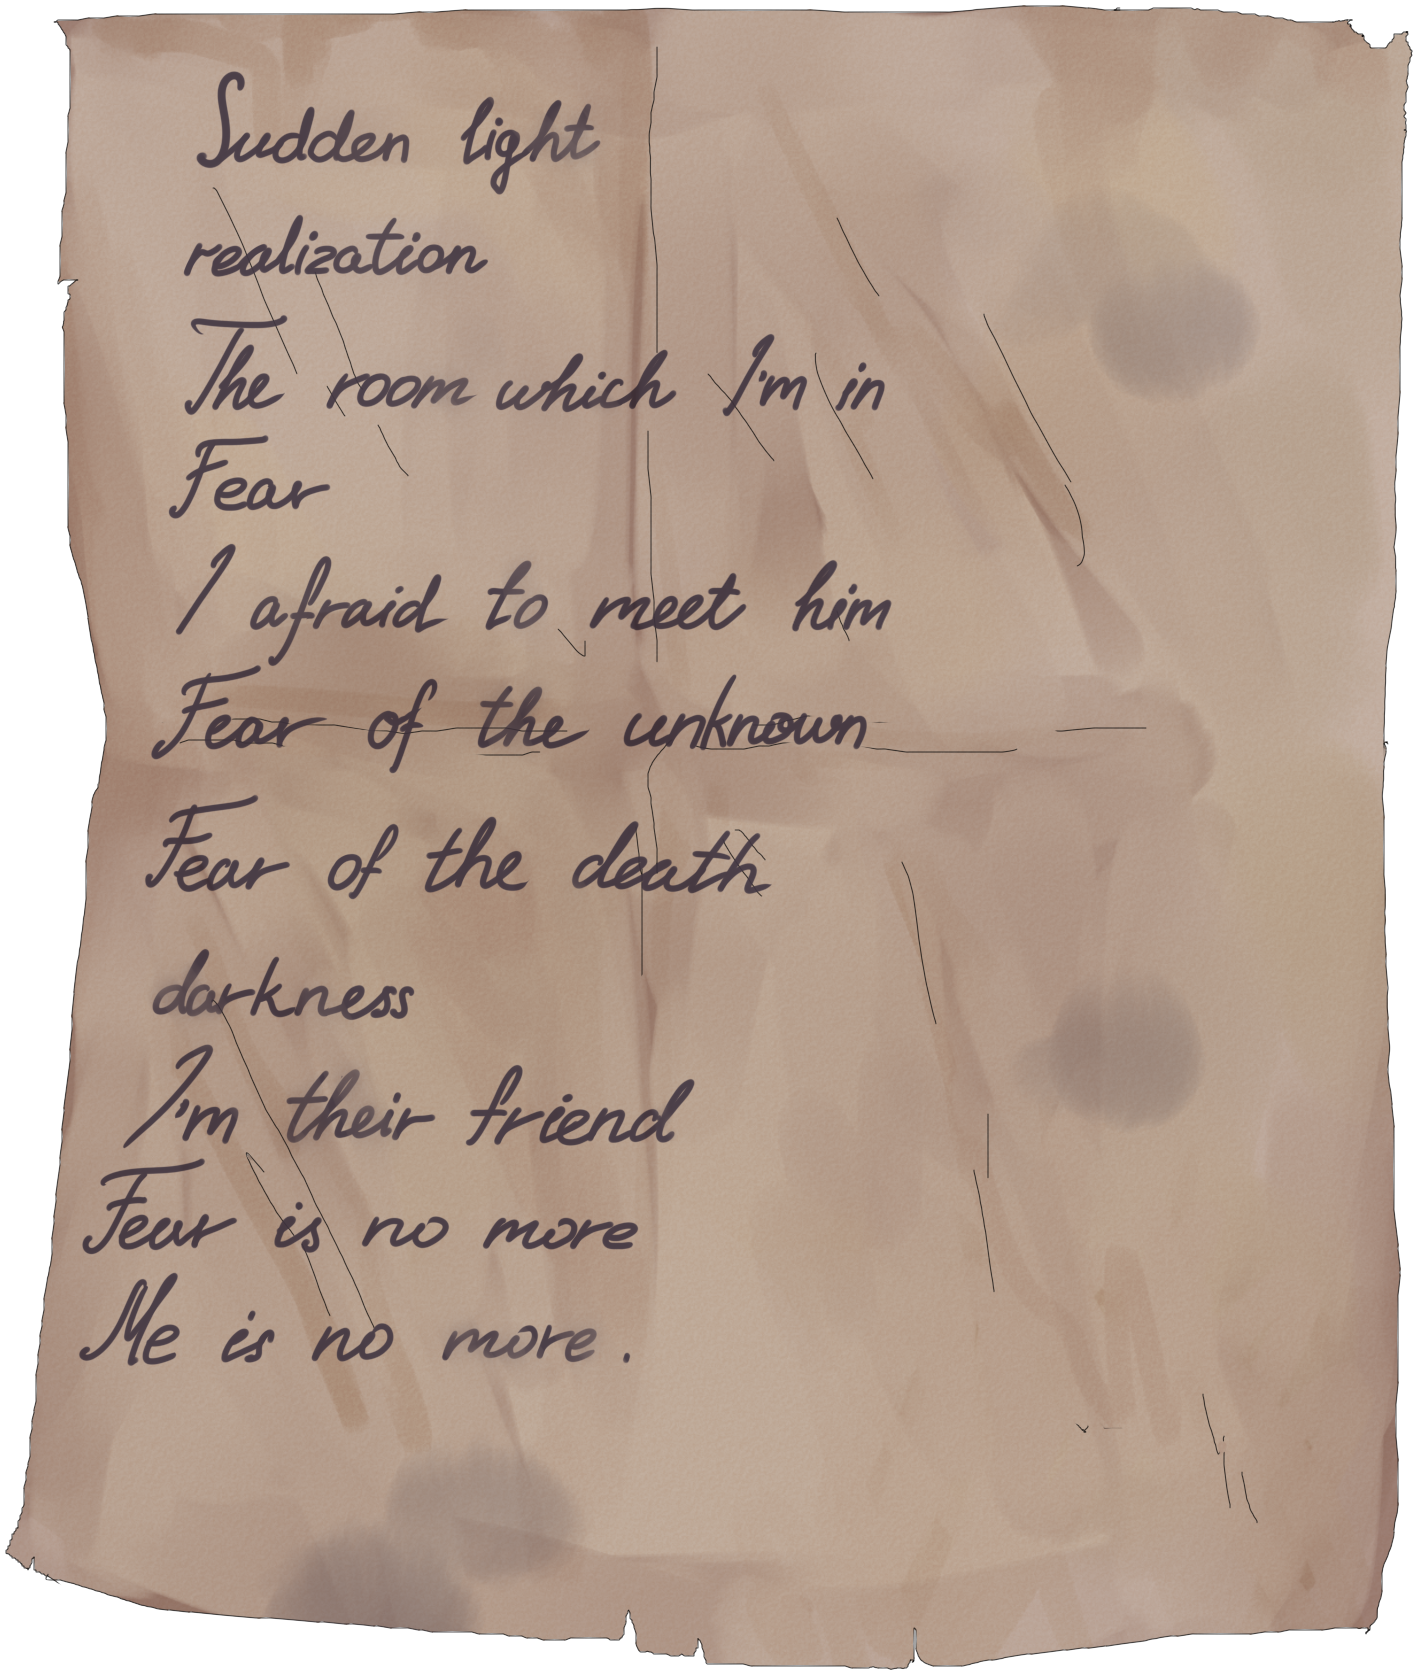 Sudden light
realization
The room which I'm in
Fear
I afraid to meet him
Fear of the unknown
Fear of the death
darkness
I'm their friend
Fear is no more
Me is no more.